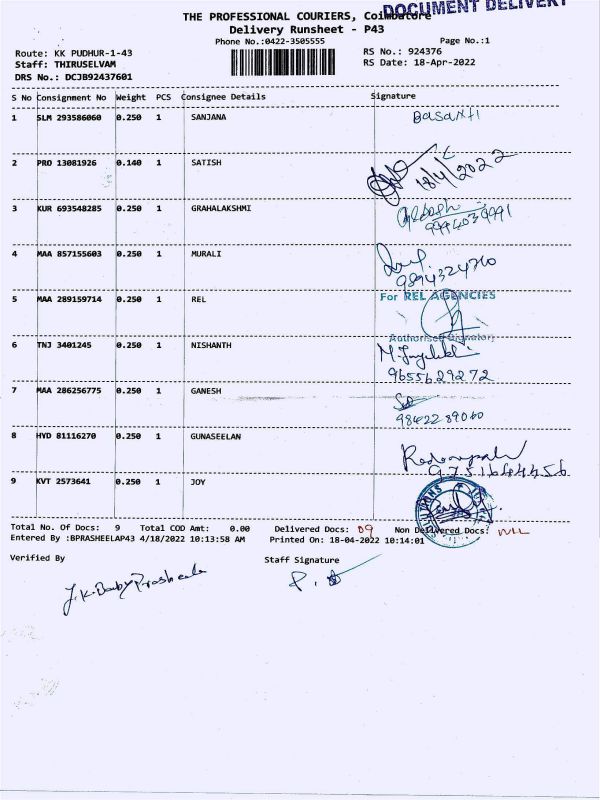 DOCUMENT DELIVERY
THE PROFESSIONAL COURIERS, Coimbatore
Delivery Runsheet - P43
Phone No.:0422-3505555
Page No.:1
Route: KK PUDHUR-1-43
RS No.: 924376
Staff: THIRUSELVAM
RS Date: 18-Apr-2022
DRS No.: DCJB92437601
S No Consignment No Weight PCS Consignee Details Signature
1 SLM 293586060 0.250 1 SANJANA Basanti
2 PRO 13081926 0.140 1 SATISH 18/4/2022
3 KUR 693548285 0.250 1 GRAHALAKSHMI
9994039991
4 MAA 857155603 0.250 1 MURALI
9894324760
5 MAA 289159714 0.250 1 REL For REL AGENCIES
Authorised Signatory
6 TNJ 3401245 0.250 1 NISHANTH
9655629272
7 MAA 286256775 0.250 1 GANESH
9842289060
8 HYD 81116270 0.250 1 GUNASEELAN
9751664456
9 KVT 2573641 0.250 1 JOY
Total No. Of Docs: 9 Total COD Amt: 0.00 Delivered Docs: 09 Non Delivered Docs: NIL
Entered By :BPRASHEELAP43 4/18/2022 10:13:58 AM Printed On: 18-04-2022 10:14:01
Verified By Staff Signature
J.K.Baby Prasheela